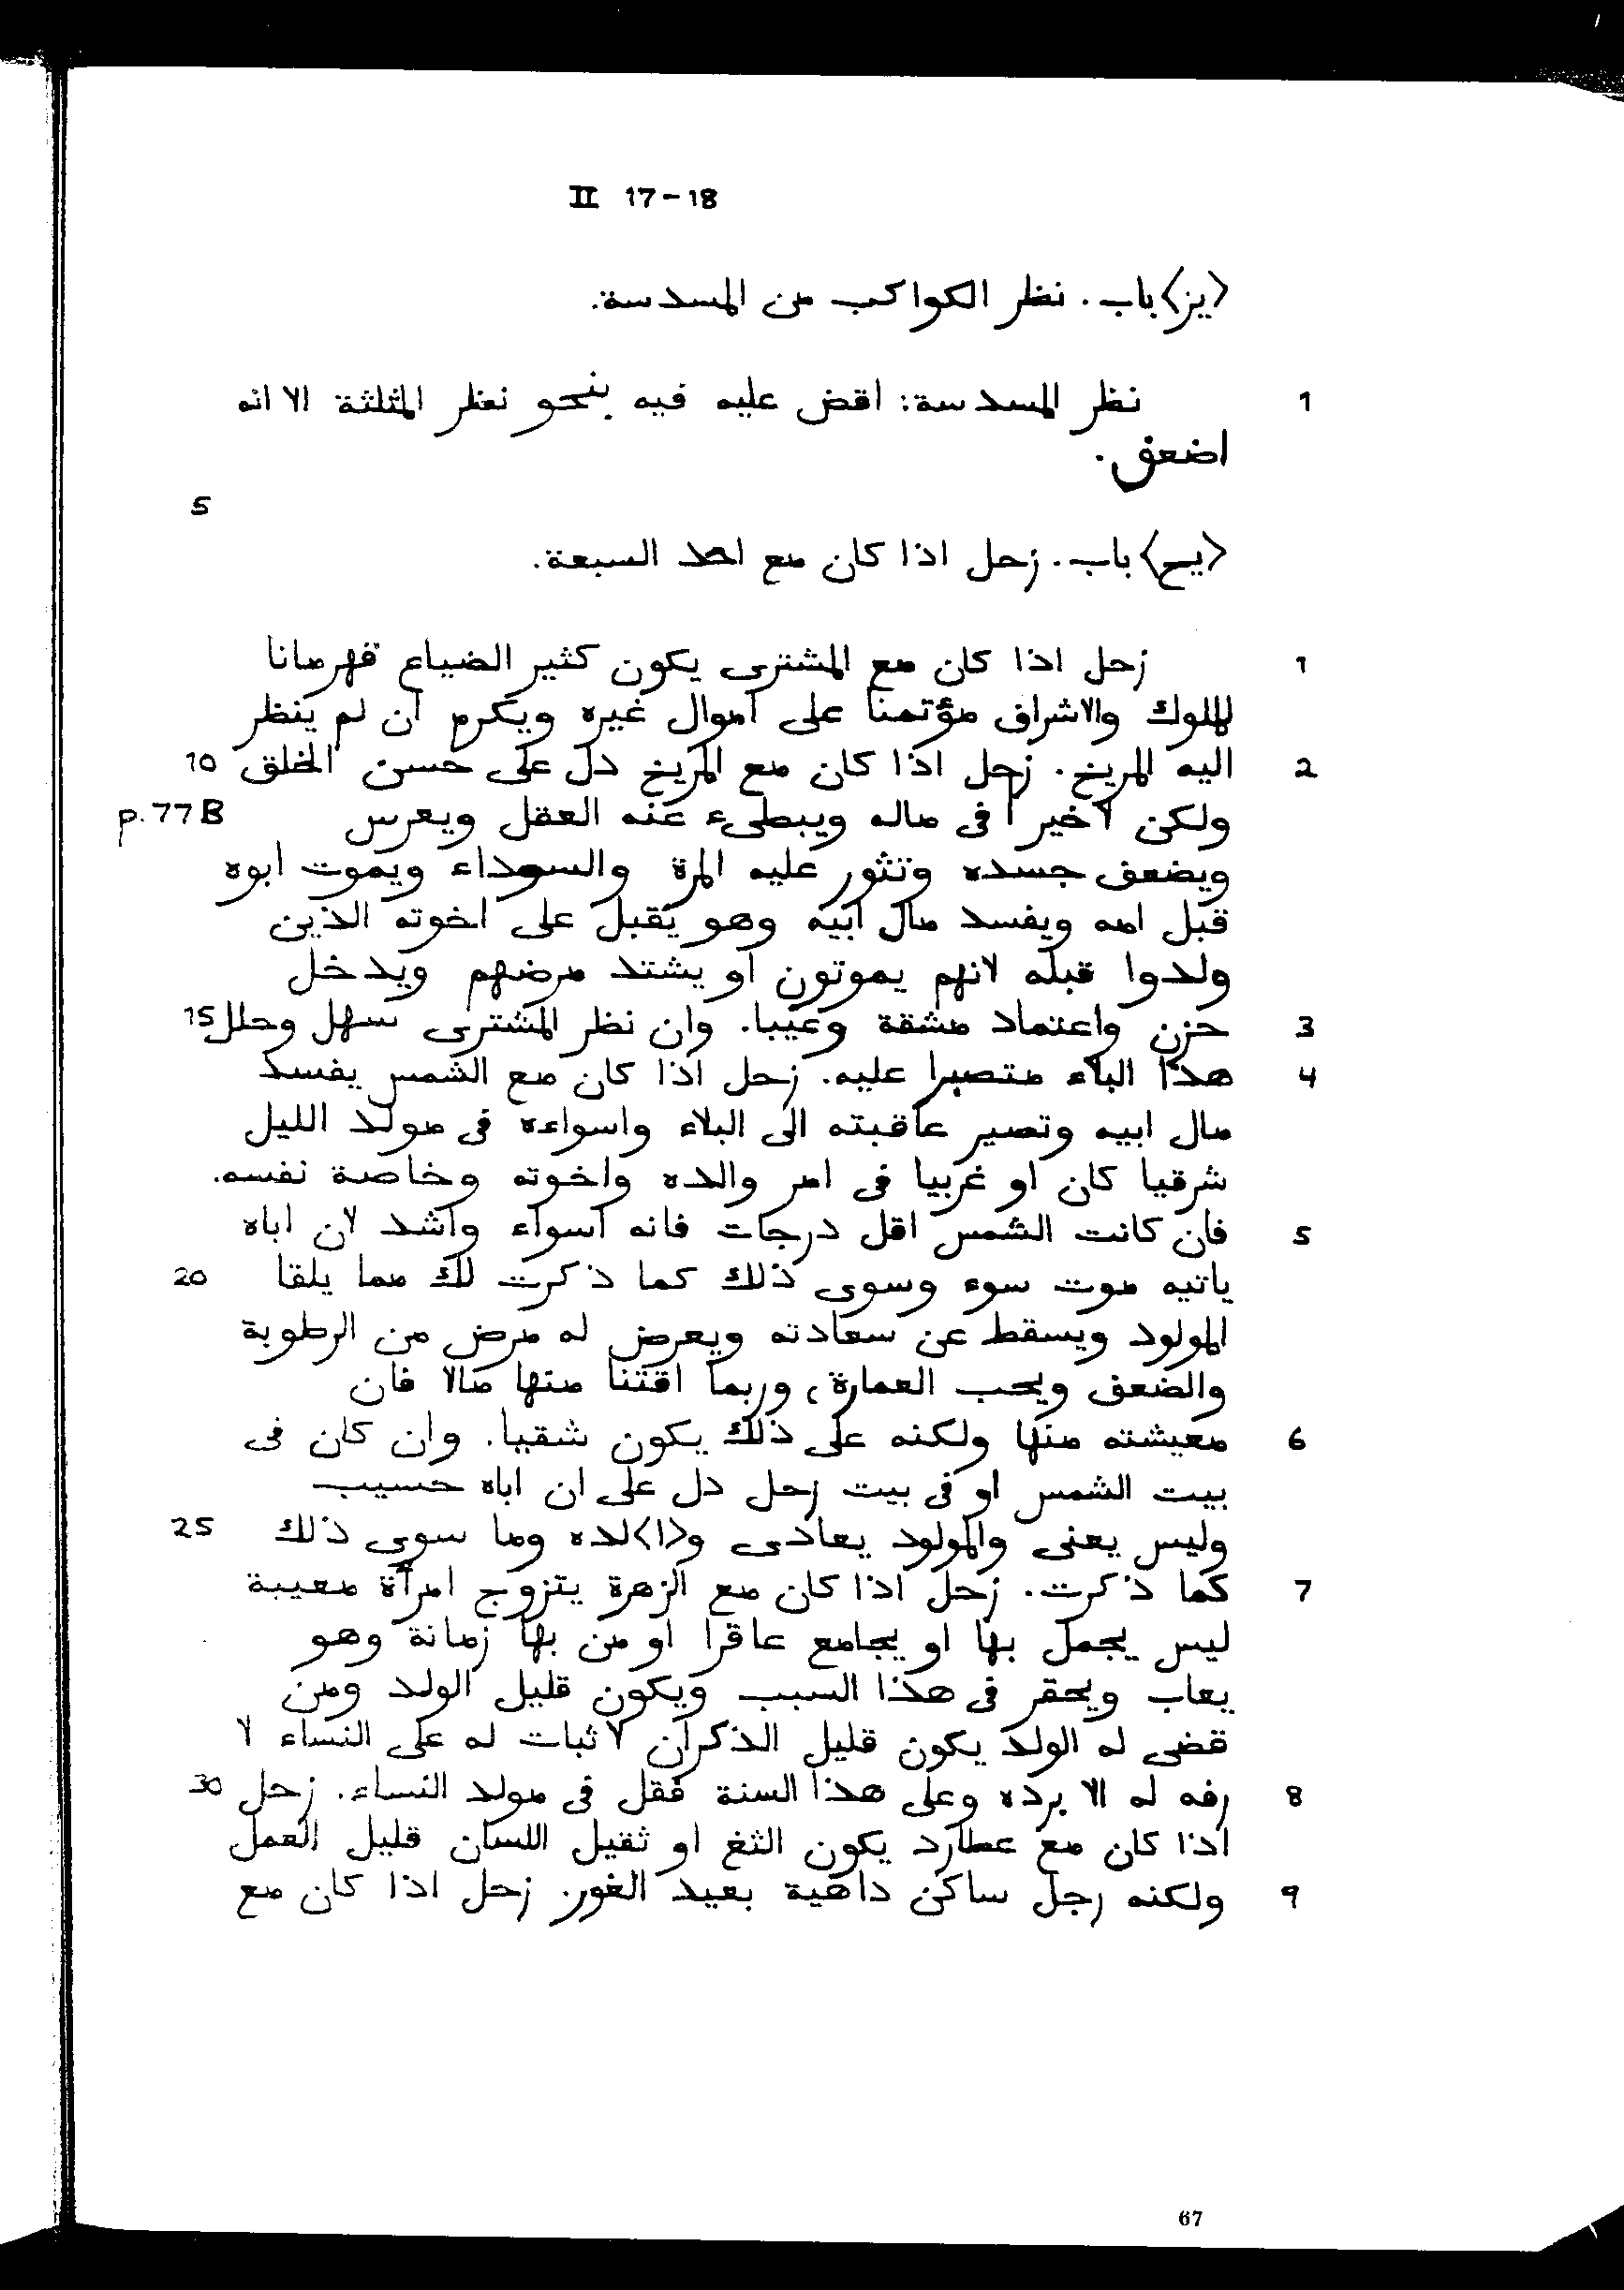 II 17-18
<يز> باب. نظر الكواكب من المسدسة.
1 نظر المسدسة: اقض عليه فيه بنحو نظر المثلثة الا انه
اضعف.
5
<يح> باب. زحل اذا كان مع احد السبعة.
1 زحل اذا كان مع المشترى يكون كثير الضياع قهرمانا
للملوك والاشراف مؤتمنا على اموال غيره ويكرم ان لم ينظر
2 اليه المريخ. زحل اذا كان مع المريخ دل على حسن الخلق 10
ولكن لا خير ا فى ماله ويبطىء عنه العقل ويعرس p. 77 B
ويضعف جسده وتثور عليه المرة والسوداء ويموت ابوه
قبل امه ويفسد مال ابيه وهو يقبل على اخوته الذين
ولدوا قبله لانهم يموتون او يشتد مرضهم ويدخل
3 حزن واعتماد مشقة وعيبا. وان نظر المشترى سهل وحلل 15
4 هذا البلاء متصبرا عليه. زحل اذا كان مع الشمس يفسد
مال ابيه وتصير عاقبته الى البلاء واسواءه فى مولد الليل
شرقيا كان او غربيا فى امر والده واخوته وخاصة نفسه.
5 فان كانت الشمس اقل درجات فانه اسواء واشد لان اباه
ياتيه موت سوء وسوى ذلك كما ذكرت لك مما يلقا 20
المولود ويسقط عن سعادته ويعرض له مرض من الرطوبة
والضعف ويحب العمارة، وربما اقتنا منها مالا فان
6 معيشته منها ولكنه على ذلك يكون شقيا. وان كان فى
بيت الشمس او فى بيت زحل دل على ان اباه حسيب
وليس يعنى والمولود يعادى و<ا>لده وما سوى ذلك 25
7 كما ذكرت. زحل اذا كان مع الزهرة يتزوج امرأة معيبة
ليس يجمل بها او يجامع عاقرا او من بها زمانة وهو
يعاب ويحقر فى هذا السبب ويكون قليل الولد ومن
قضى له الولد يكون قليل الذكران لا ثبات له على النساء لا
8 رفه له الا برده وعلى هذا السنة فقل فى مولد النساء. زحل 30
اذا كان مع عطارد يكون الثغ او ثقيل اللسان قليل العمل
9 ولكنه رجل ساكن داهية بعيد الغور. زحل اذا كان مع
67